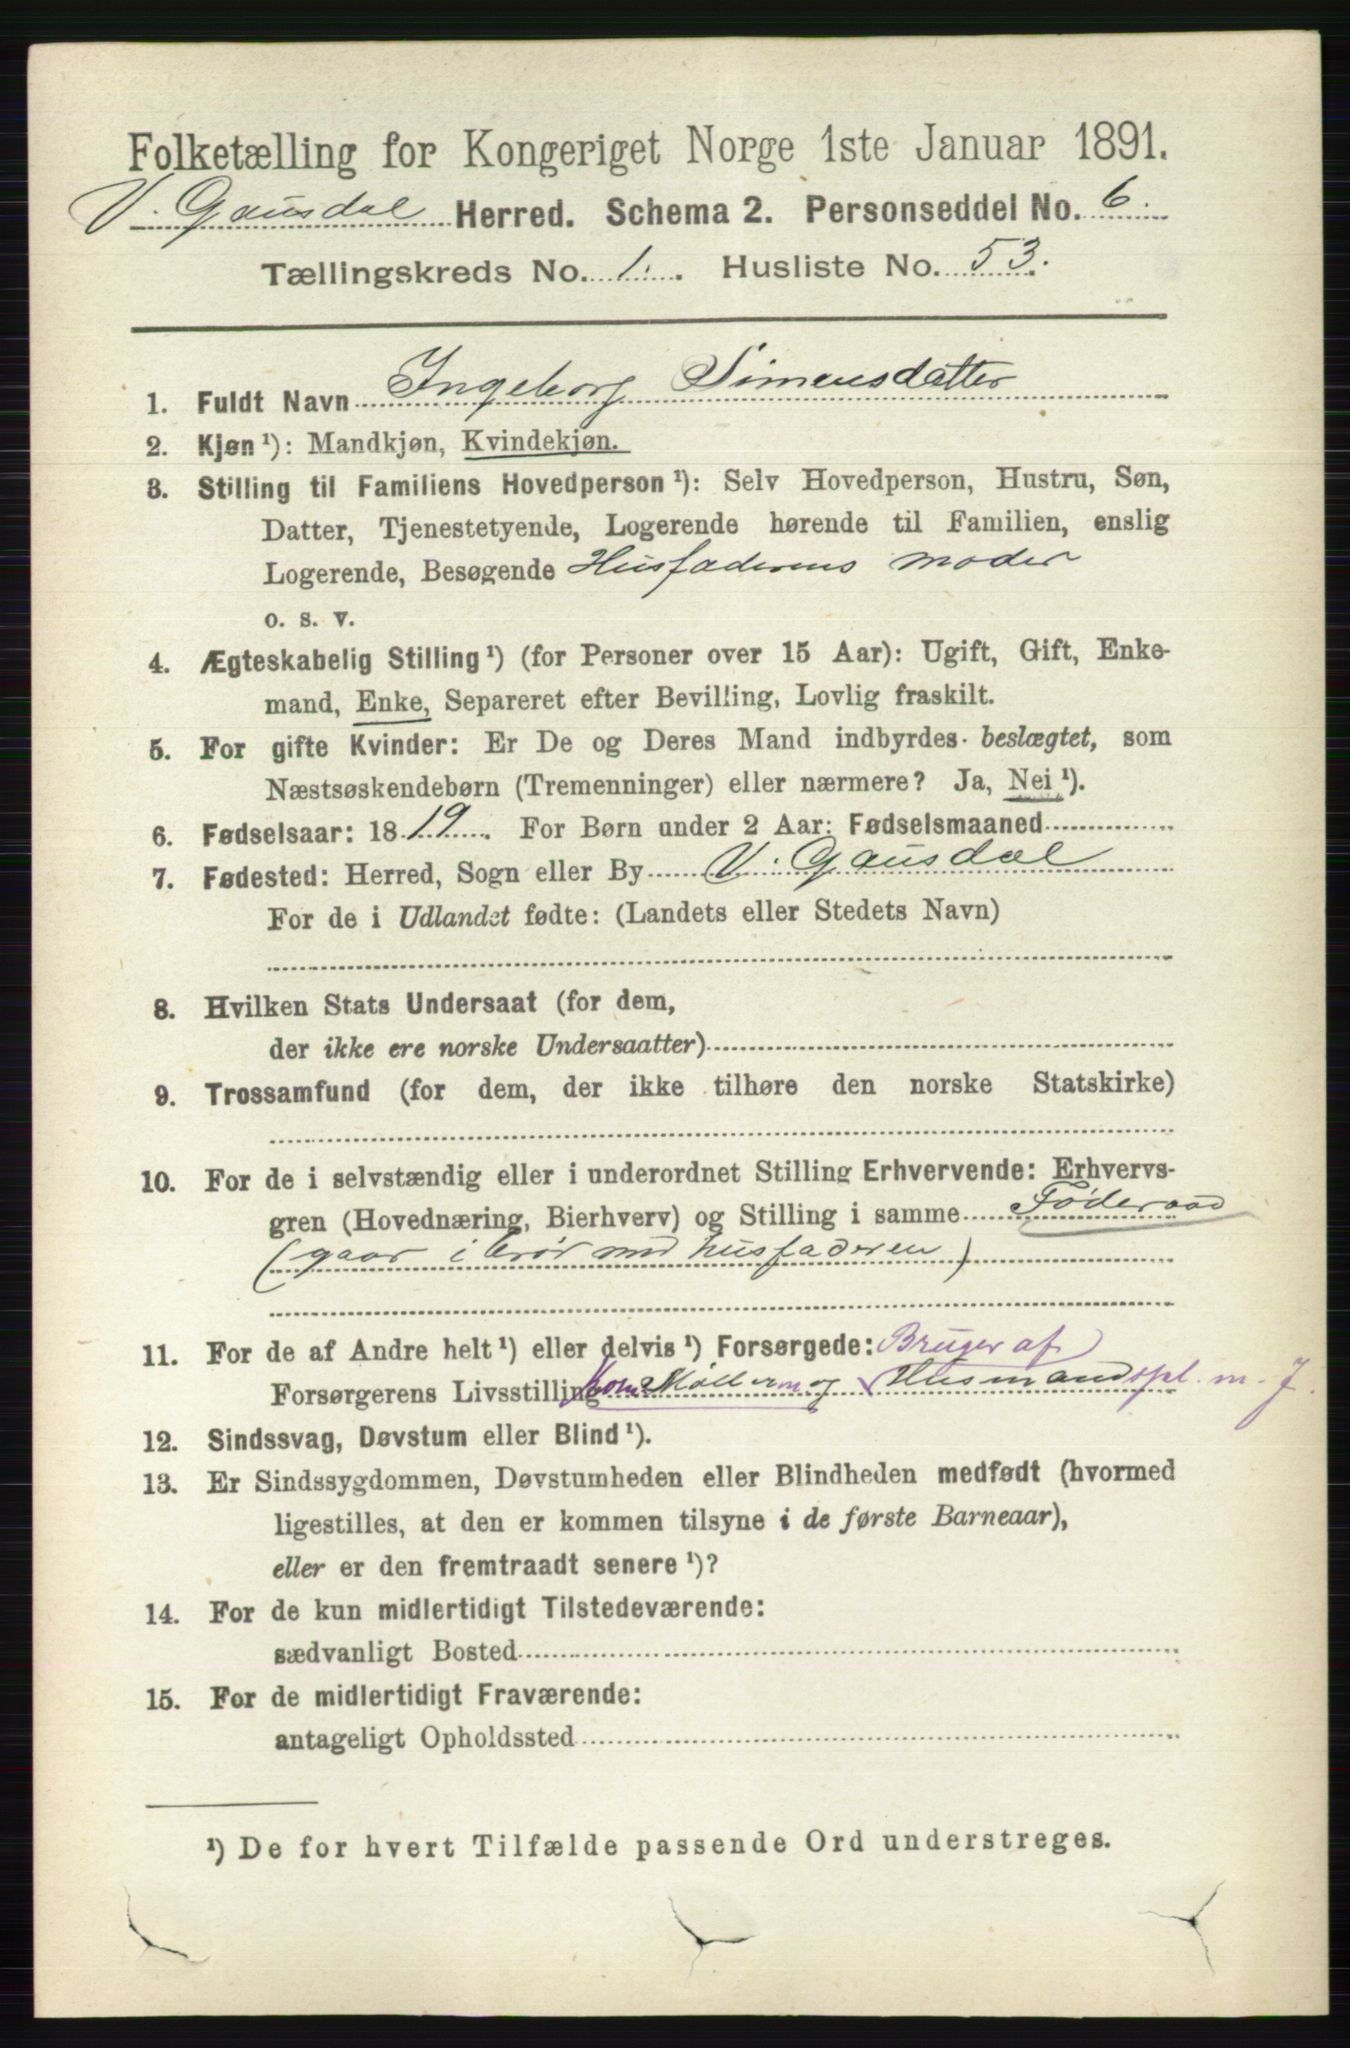 Folketælling for Kongeriget Norge 1ste Januar 1891.
V. Gausdal Herred. Schema 2. Personseddel No. 6.
Tællingskreds No. 1. Husliste No. 53.
1. Fuldt Navn Ingeborg Simensdatter
2. Kjøn ¹): Mandkjøn, Kvindekjøn.
3. Stilling til Familiens Hovedperson ¹): Selv Hovedperson, Hustru, Søn,
Datter, Tjenestetyende, Logerende hørende til Familien, enslig
Logerende, Besøgende Husfaderens moder
o. s. v.
4. Ægteskabelig Stilling ¹) (for Personer over 15 Aar): Ugift, Gift, Enke-
mand, Enke, Separeret efter Bevilling, Lovlig fraskilt.
5. For gifte Kvinder: Er De og Deres Mand indbyrdes beslægtet, som
Næstsøskendebørn (Tremenninger) eller nærmere? Ja, Nei ¹).
6. Fødselsaar: 1819. For Børn under 2 Aar: Fødselsmaaned
7. Fødested: Herred, Sogn eller By V. Gausdal
For de i Udlandet fødte: (Landets eller Stedets Navn)
8. Hvilken Stats Undersaat (for dem,
der ikke ere norske Undersaatter)
9. Trossamfund (for dem, der ikke tilhøre den norske Statskirke)
10. For de i selvstændig eller i underordnet Stilling Erhvervende: Erhvervs-
gren (Hovednæring, Bierhverv) og Stilling i samme Føderaad
(gaar i brød med husfaderen)
11. For de af Andre helt ¹) eller delvis ¹) Forsørgede: Bruger af
Forsørgerens Livsstilling Korn Møllerm og Husmandspl. m. J.
12. Sindssvag, Døvstum eller Blind ¹).
13. Er Sindssygdommen, Døvstumheden eller Blindheden medfødt (hvormed
ligestilles, at den er kommen tilsyne i de første Barneaar),
eller er den fremtraadt senere ¹)?
14. For de kun midlertidigt Tilstedeværende:
sædvanligt Bosted
15. For de midlertidigt Fraværende:
antageligt Opholdssted
¹) De for hvert Tilfælde passende Ord understreges.